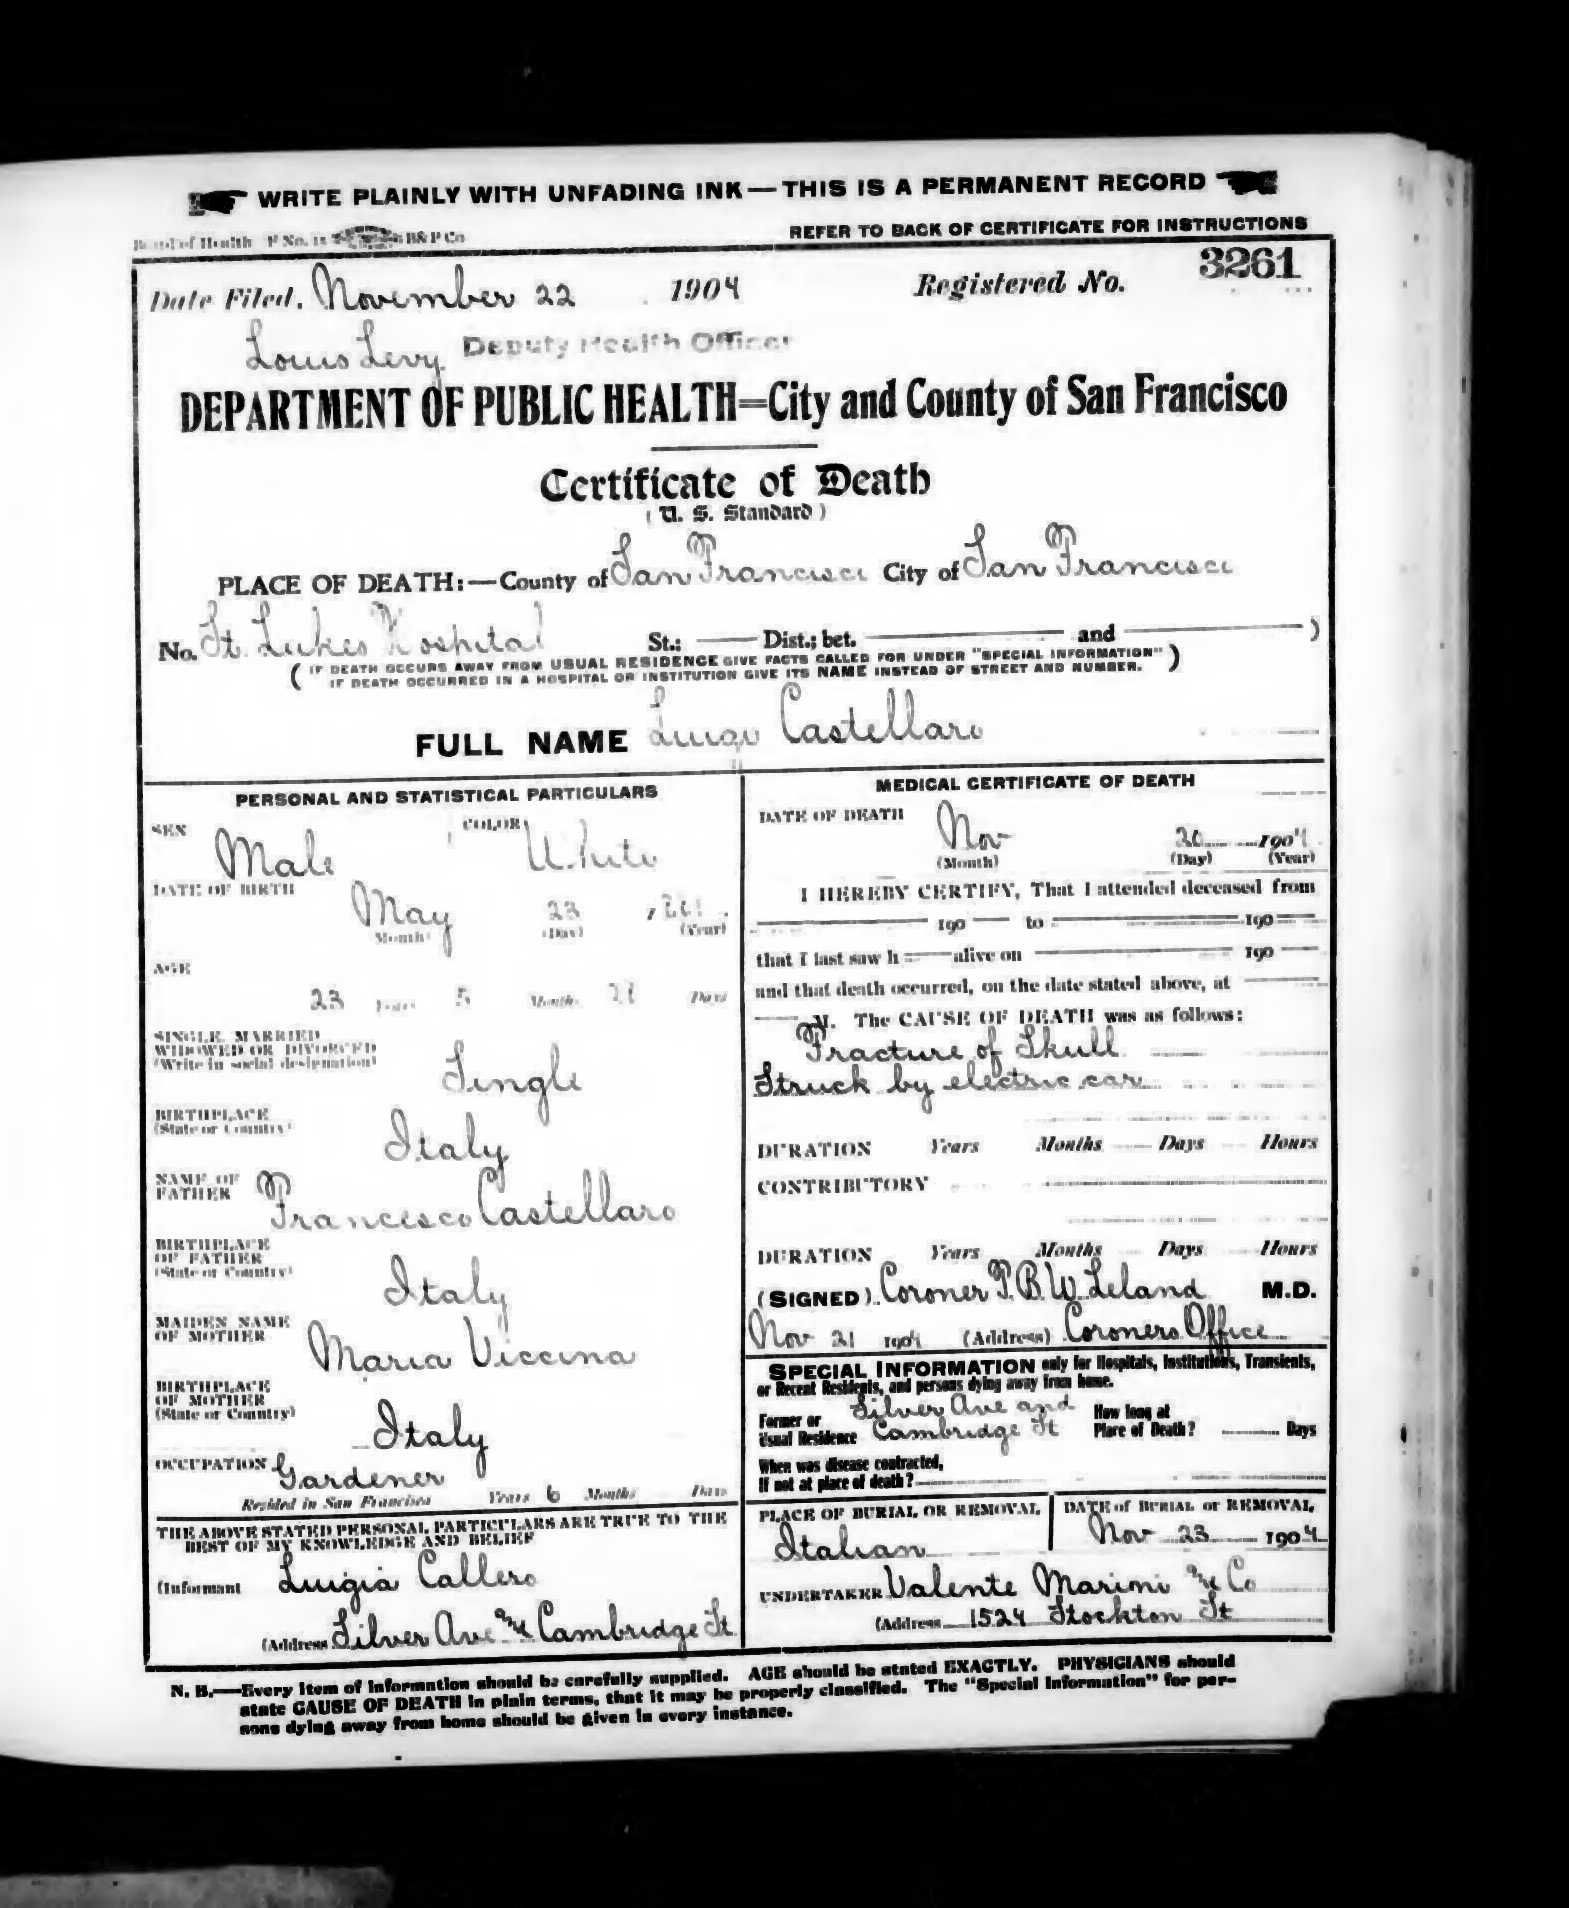 WRITE PLAINLY WITH UNFADING INK—THIS IS A PERMANENT RECORD
Board of Health F No. 11 B&P Co
REFER TO BACK OF CERTIFICATE FOR INSTRUCTIONS
Date Filed, November 22 1904 Registered No. 3261
Louis Levy Deputy Health Officer
DEPARTMENT OF PUBLIC HEALTH=City and County of San Francisco
Certificate of Death
( U. S. Standard )
PLACE OF DEATH:—County of San Francisco City of San Francisco
No. St. Lukes Hospital St.; Dist.; bet. and )
( IF DEATH OCCURS AWAY FROM USUAL RESIDENCE GIVE FACTS CALLED FOR UNDER "SPECIAL INFORMATION" )
IF DEATH OCCURRED IN A HOSPITAL OR INSTITUTION GIVE ITS NAME INSTEAD OF STREET AND NUMBER.
FULL NAME Luigi Castellaro
PERSONAL AND STATISTICAL PARTICULARS
SEX Male COLOR White
DATE OF BIRTH May 23
(Month) (Day) (Year)
AGE
23 Years 5 Months Days
SINGLE, MARRIED
WIDOWED OR DIVORCED
(Write in social designation) Single
BIRTHPLACE
(State or Country) Italy
NAME OF
FATHER Francesco Castellaro
BIRTHPLACE
OF FATHER
(State or Country) Italy
MAIDEN NAME
OF MOTHER Maria Viccina
BIRTHPLACE
OF MOTHER
(State or Country) Italy
OCCUPATION Gardener
Resided in San Francisco Years 6 Months Days
THE ABOVE STATED PERSONAL PARTICULARS ARE TRUE TO THE
BEST OF MY KNOWLEDGE AND BELIEF
(Informant Luigia Callero
(Address Silver Ave and Cambridge St
MEDICAL CERTIFICATE OF DEATH
DATE OF DEATH Nov 20 1904
(Month) (Day) (Year)
I HEREBY CERTIFY, That I attended deceased from
190 to 190
that I last saw h alive on 190
and that death occurred, on the date stated above, at
M. The CAUSE OF DEATH was as follows:
Fracture of Skull
Struck by electric car
DURATION Years Months Days Hours
CONTRIBUTORY
DURATION Years Months Days Hours
(SIGNED) Coroner T. B. W. Leland M.D.
Nov 21 1904 (Address) Coroners Office
SPECIAL INFORMATION only for Hospitals, Institutions, Transients,
or Recent Residents, and persons dying away from home.
Former or Silver Ave and How long at
Usual Residence Cambridge St Place of Death? Days
When was disease contracted,
If not at place of death?
PLACE OF BURIAL OR REMOVAL DATE of BURIAL or REMOVAL
Italian Nov 23 1904
UNDERTAKER Valente Marini and Co
(Address 1524 Stockton St
N. B.—Every item of information should be carefully supplied. AGE should be stated EXACTLY. PHYSICIANS should
state CAUSE OF DEATH in plain terms, that it may be properly classified. The "Special Information" for per-
sons dying away from home should be given in every instance.